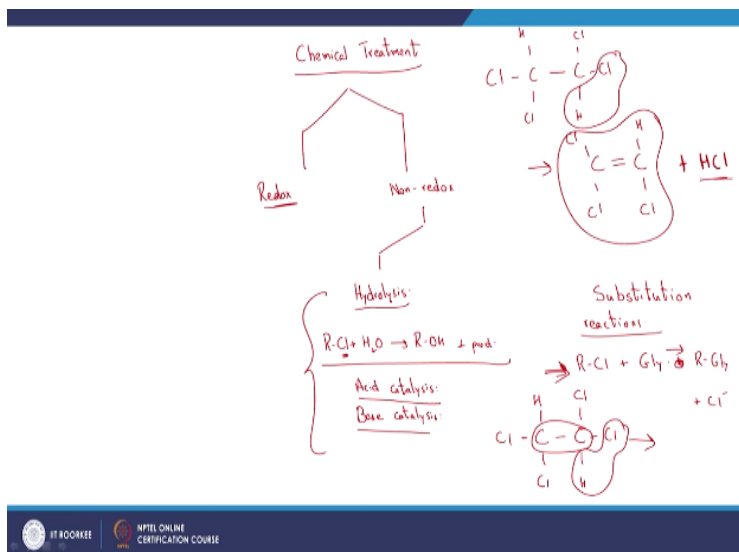 Chemical Treatment
Redox
Non-redox
Hydrolysis
R-Cl + H2O → R-OH + prod.
Acid catalysis
Base catalysis
H Cl
Cl - C - C - Cl
Cl H
Cl H
→ C = C + HCl
Cl Cl
Substitution
reactions
→ R-Cl + Gly. → R-Gly
+ Cl⁻
H Cl
Cl - C - C - Cl →
Cl H
IIT ROORKEE
NPTEL ONLINE
CERTIFICATION COURSE